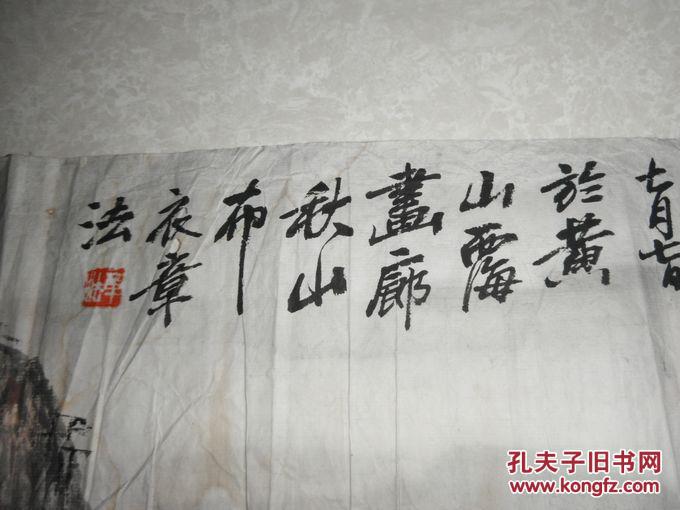 七月七日
於黄
山霞
畫廊
秋山
布
衣章
法
孔夫子旧书网
www.kongfz.com